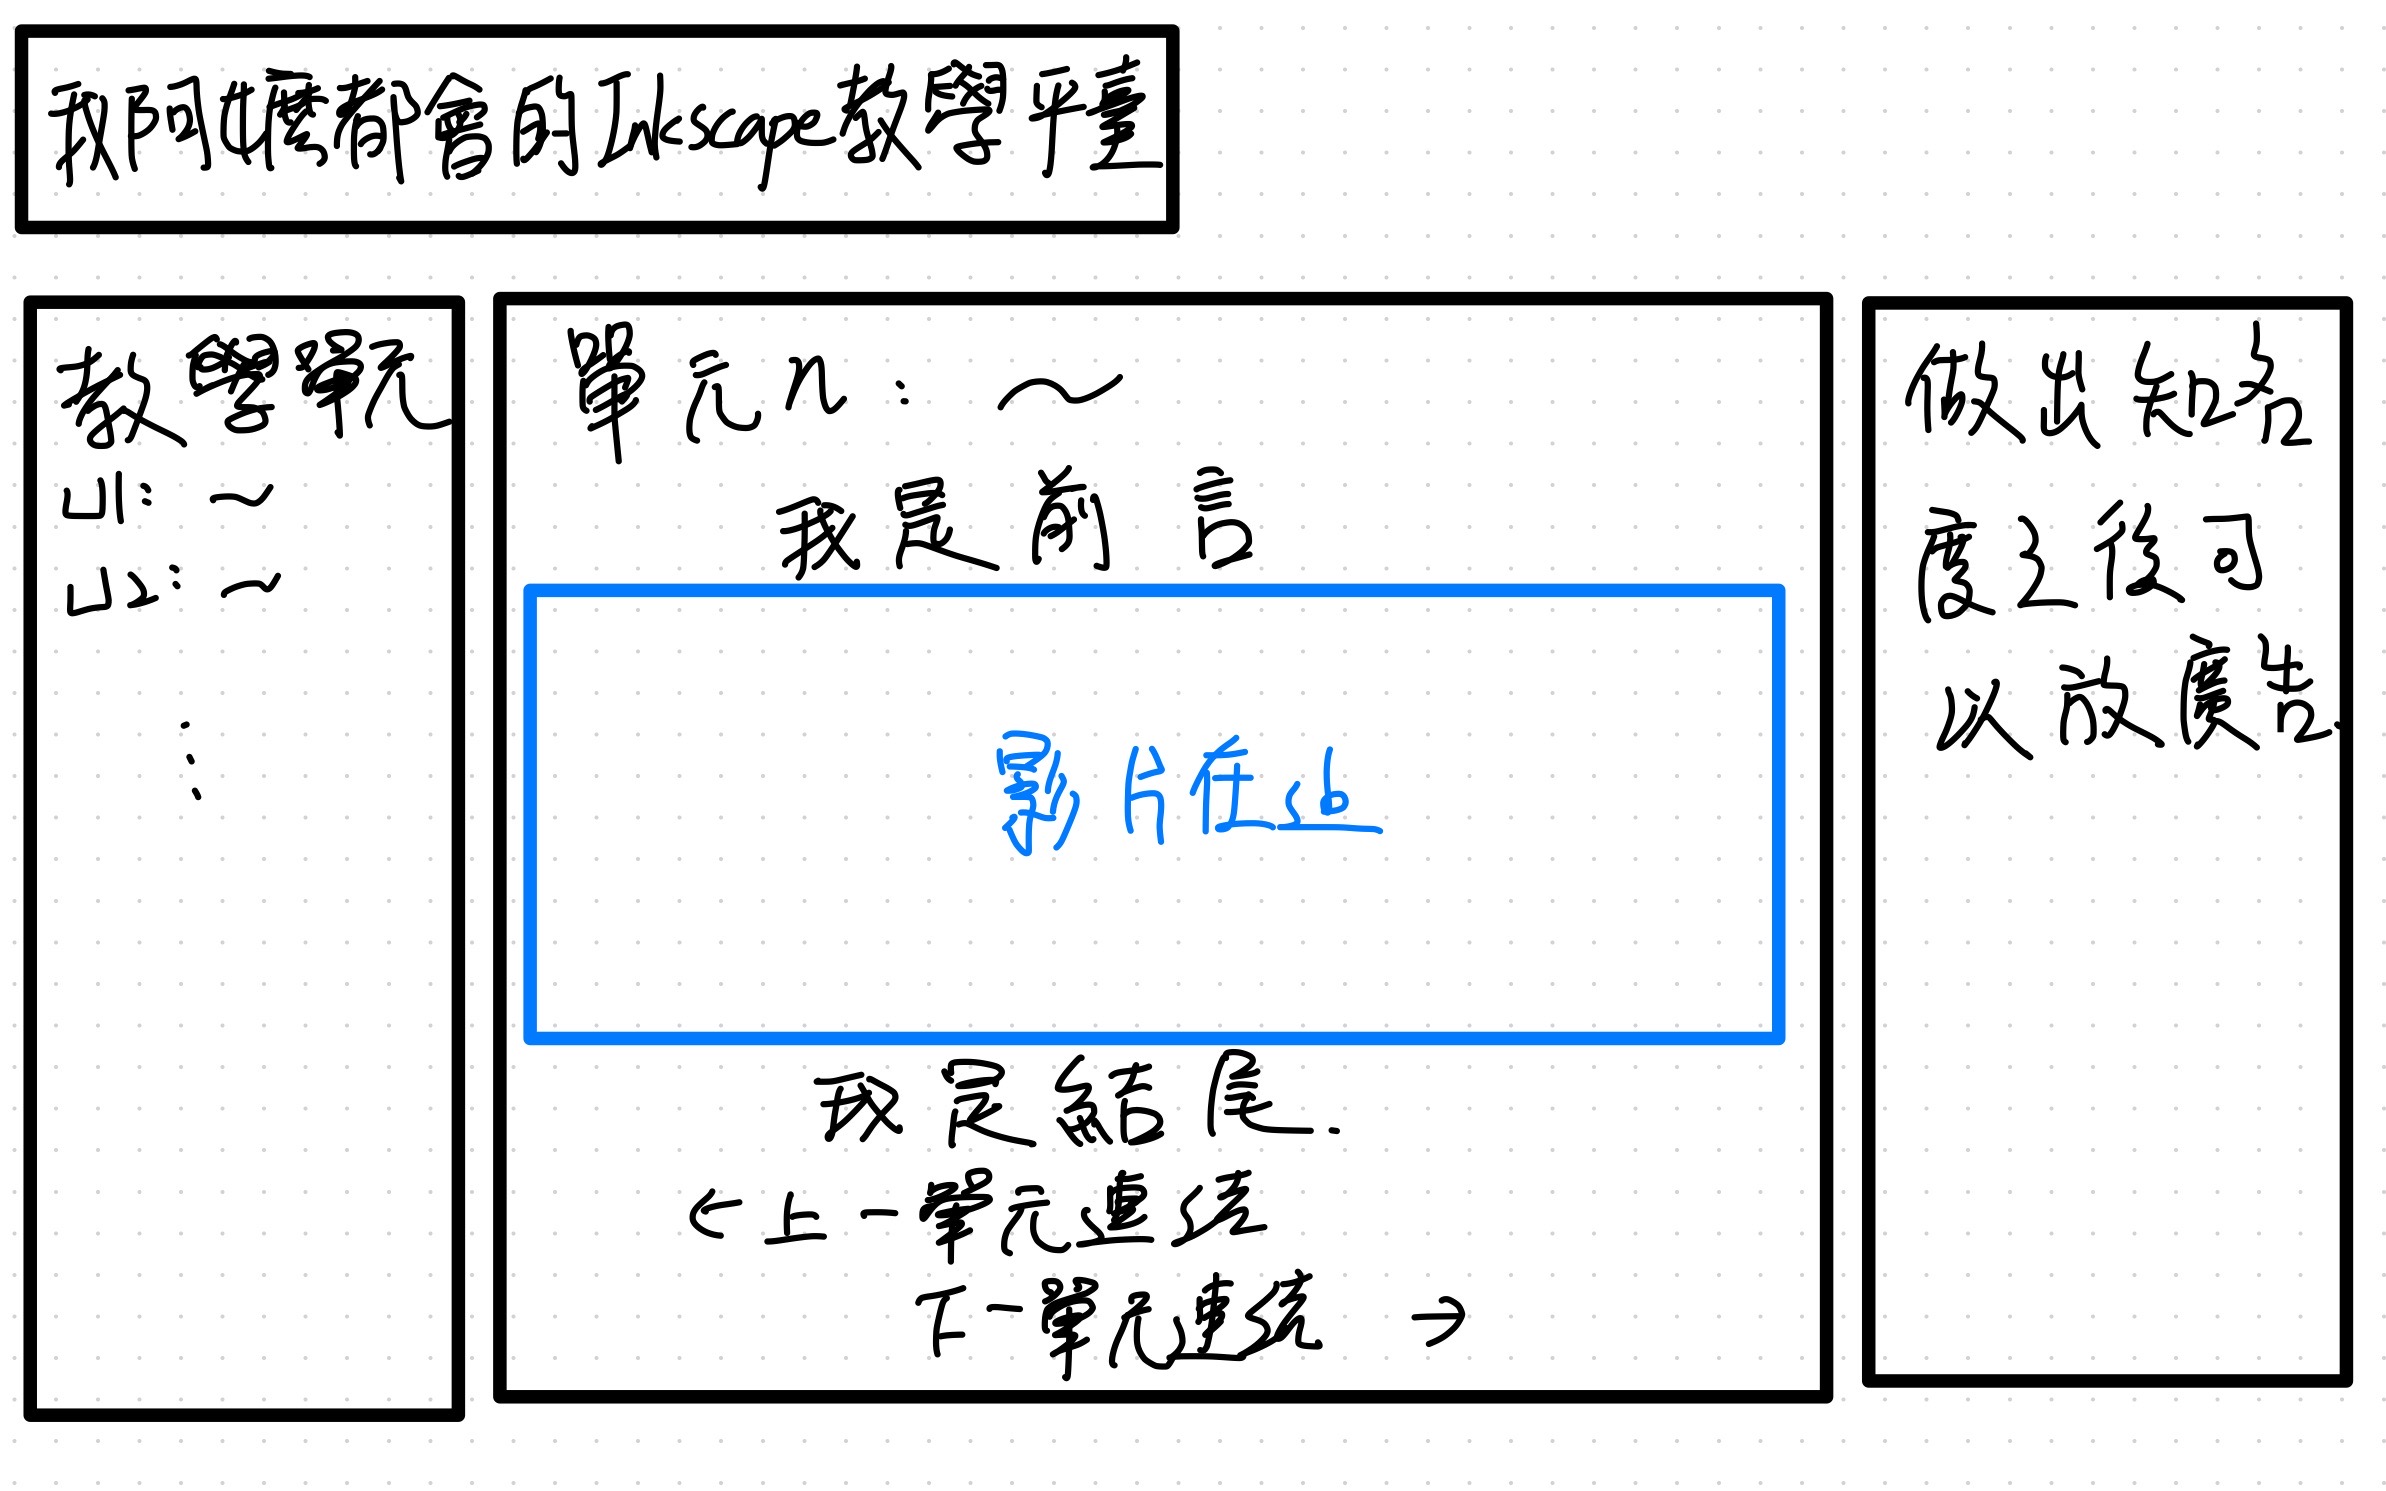 我阿嬤都會的Inkscape教學平臺
教學單元
U1: ~
U2: ~
⋮
單元 n : ~
我是前言
影片在此
我是結尾.
← 上一單元連結
下一單元連結 →
做出知名
度之後可
以放廣告.